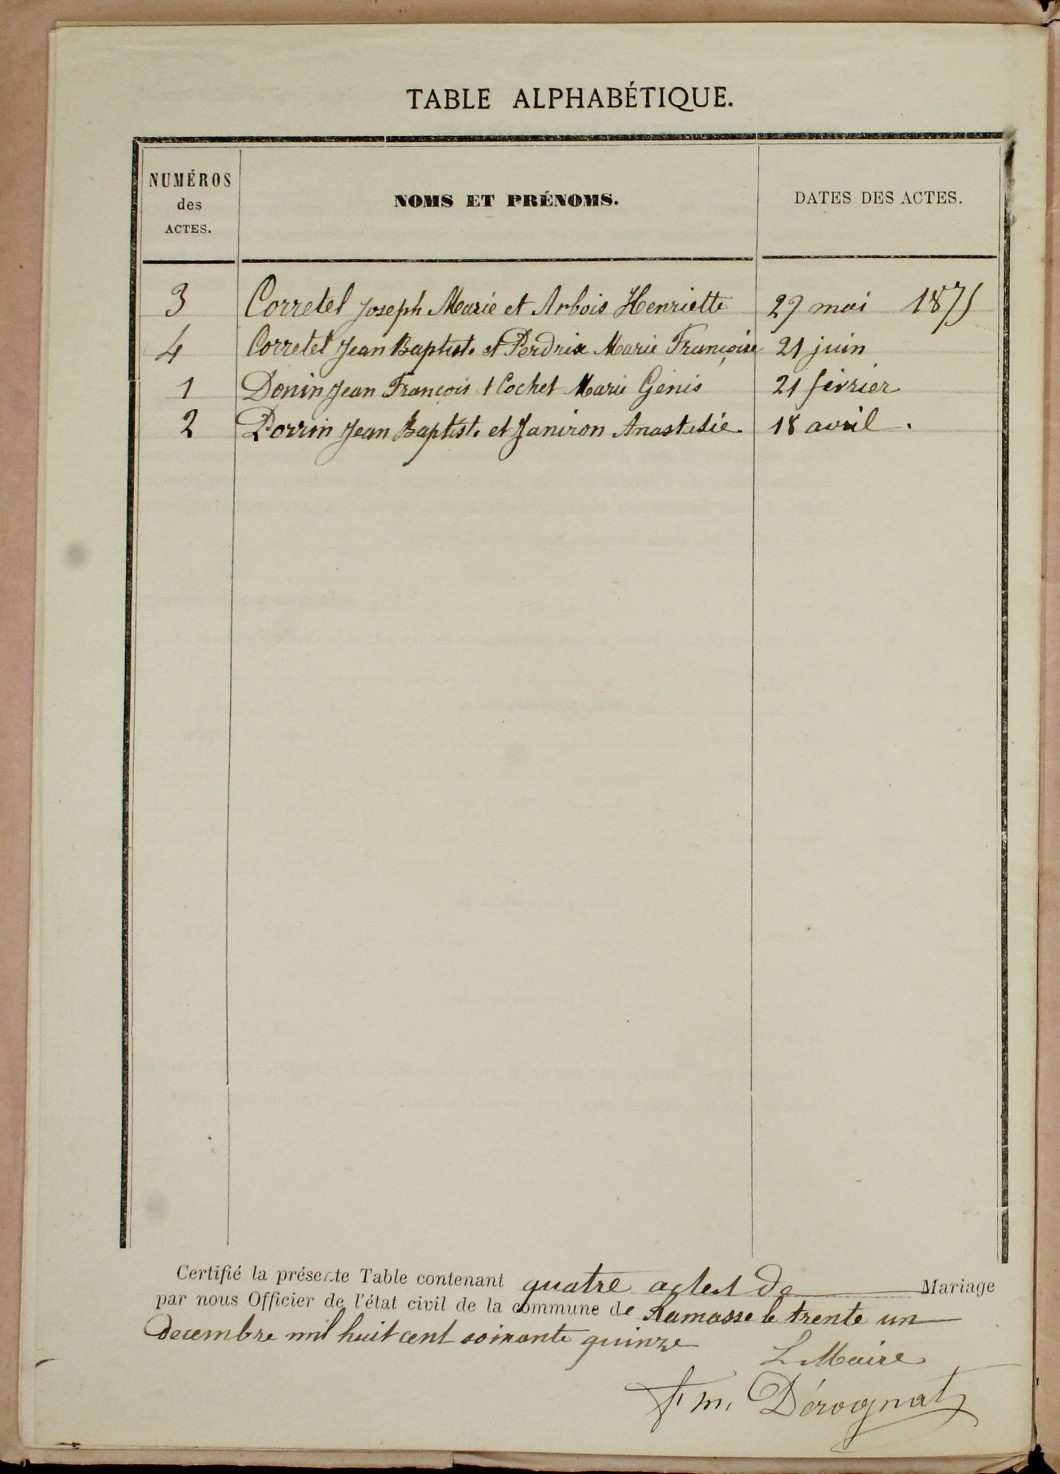 TABLE ALPHABÉTIQUE.
NUMÉROS des ACTES. NOMS ET PRÉNOMS. DATES DES ACTES.
3 Corretel Joseph Marie et Arbois Henriette 29 mai 1875
4 Corretel Jean Baptiste et Perdrix Marie Françoise 21 juin
1 Donin Jean François et Cochet Marie Génis 21 février
2 Perrin Jean Baptiste et Janiron Anastasie 18 avril.
Certifié la présente Table contenant quatre actes de Mariage
par nous Officier de l'état civil de la commune de Ramasse le trente un
decembre mil huit cent soixante quinze
L Maire
Dérognat